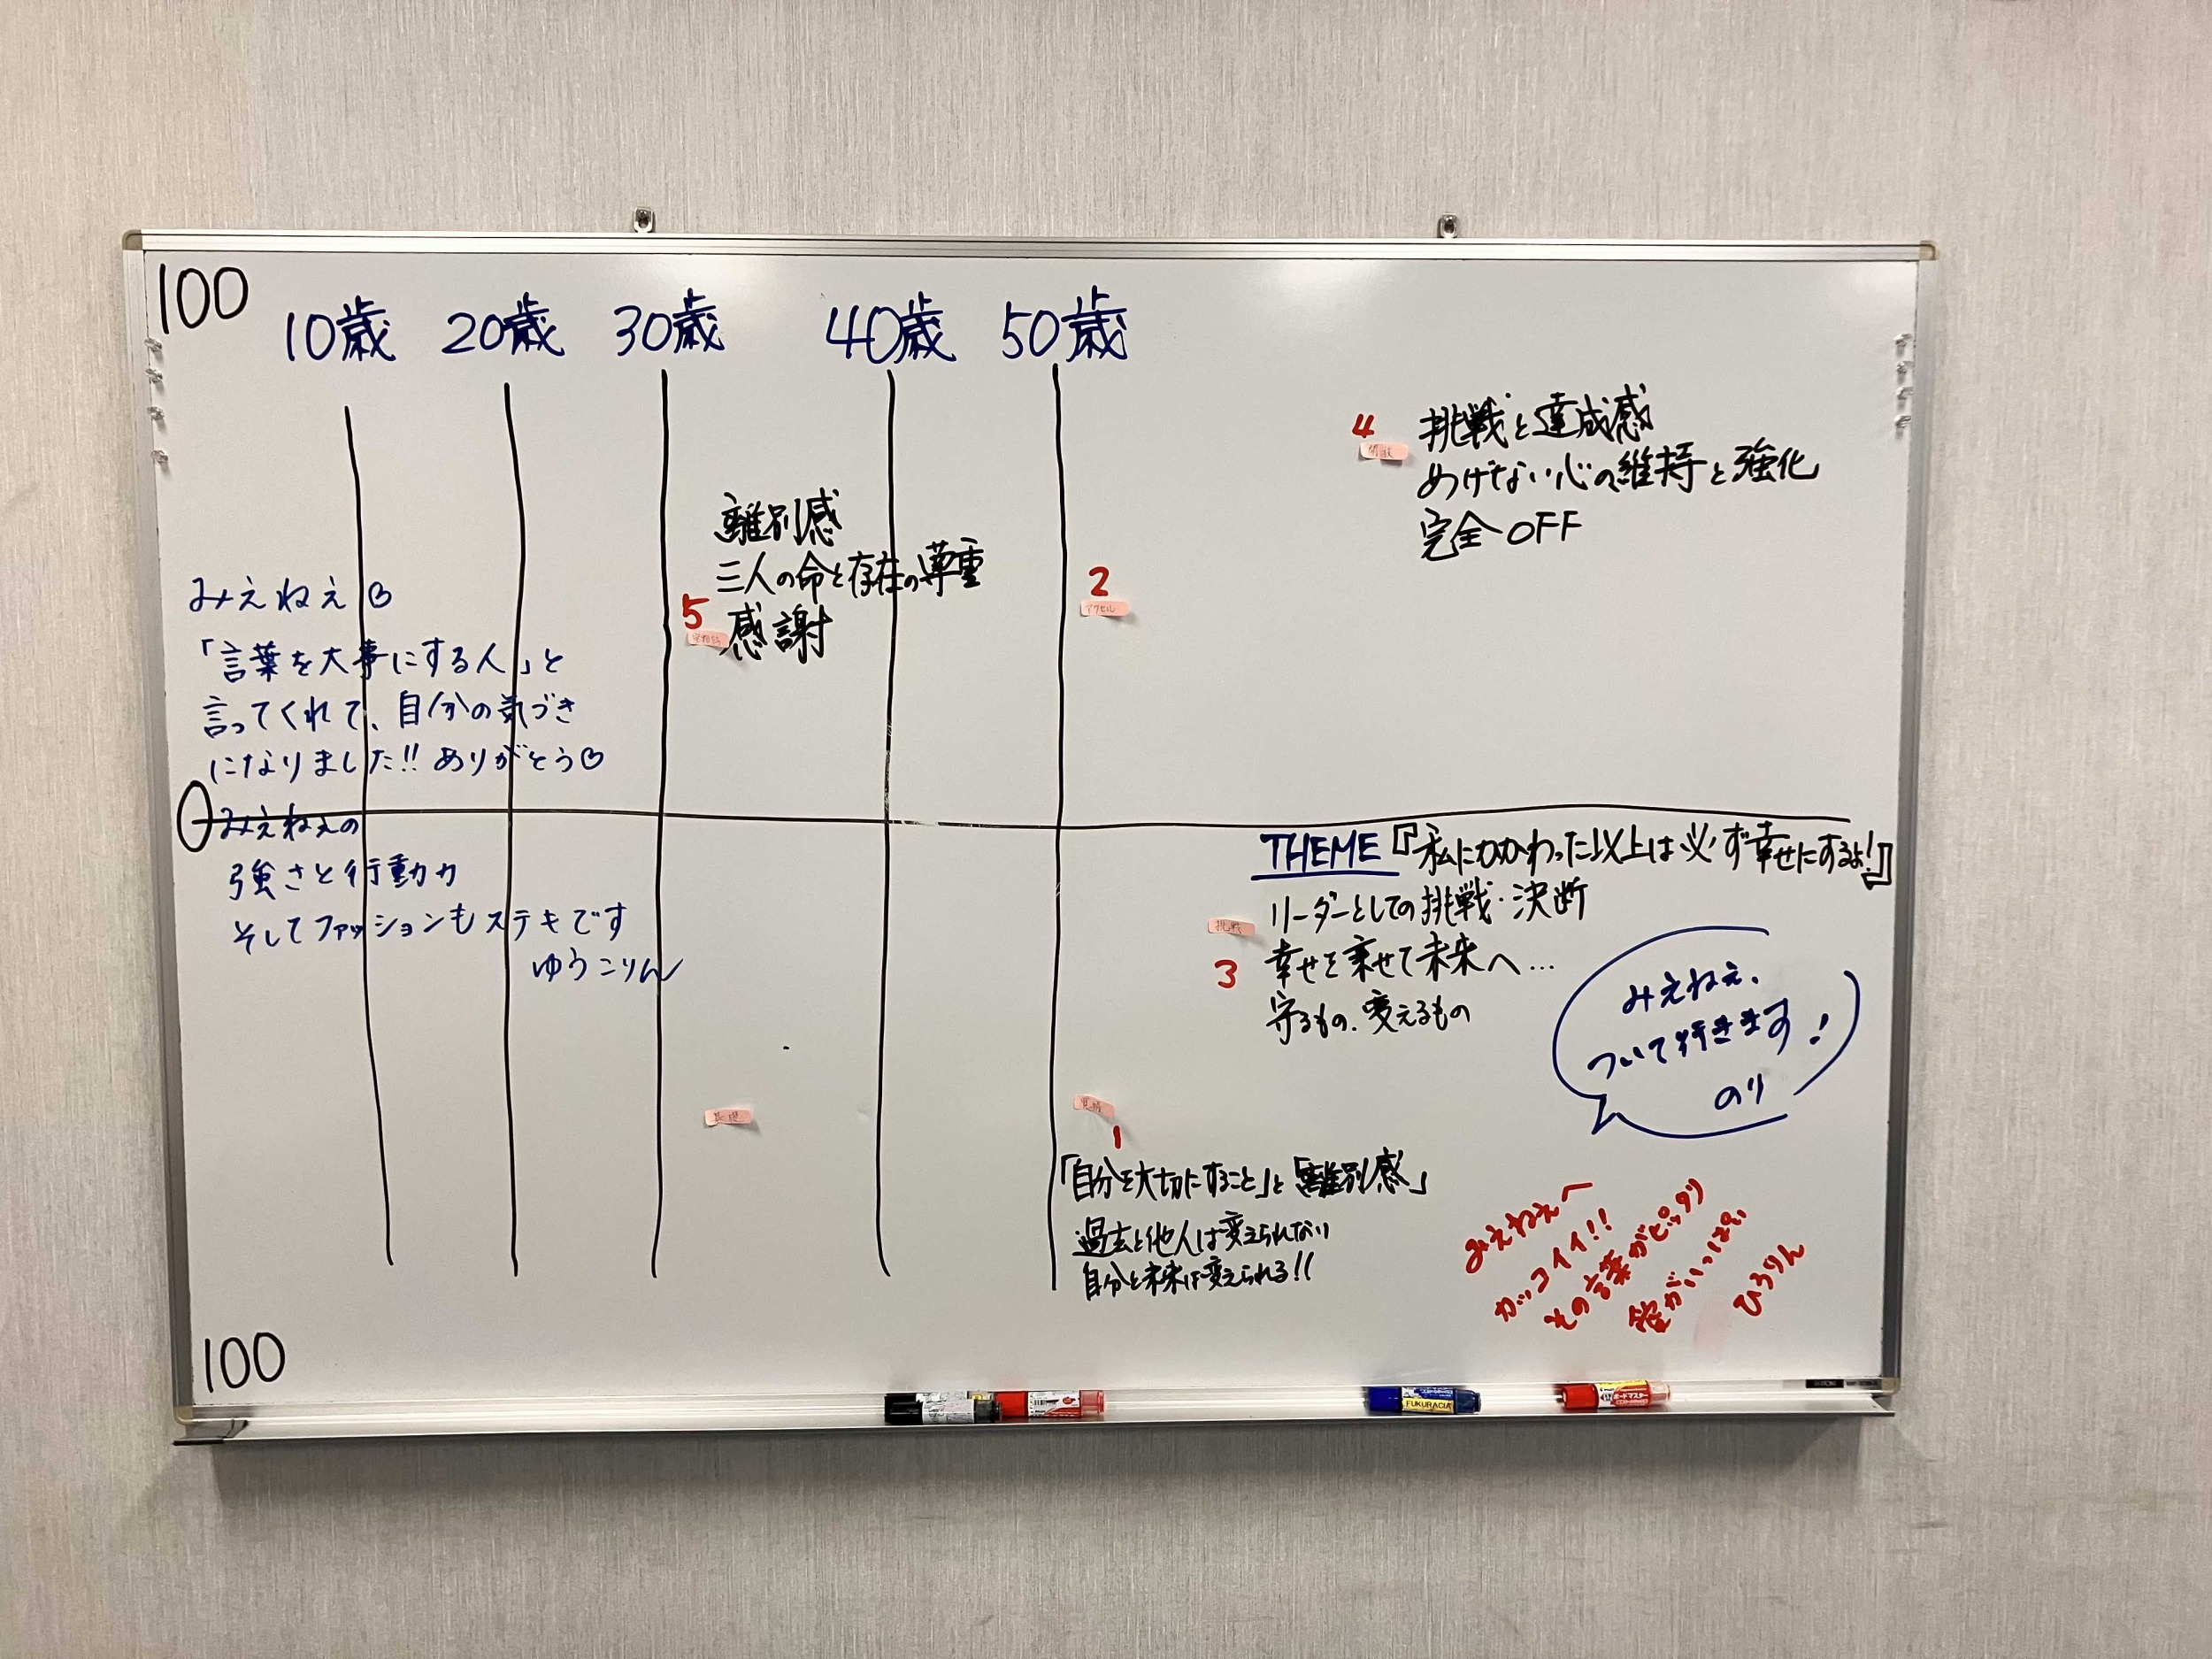 100
10歳 20歳 30歳 40歳 50歳
みえねえ
「言葉を大事にする人」と
言ってくれて、自分の気づき
になりました!! ありがとう
0
みえねえの
強さと行動力
そしてファッションもステキです
ゆうこりん
100
離別感
三人の命と存在の尊重
5
感謝
2
アクセル
4
挑戦と達成感
めげない心の維持と強化
完全OFF
THEME『私にかかわった以上は必ず幸せにするよ!』
リーダーとしての挑戦・決断
挑戦
3
幸せを乗せて未来へ…
守るもの、変えるもの
みえねえ、
ついて行きます!
のり
基礎
1
「自分を大切にすること」と「離別感」
過去と他人は変えられない
自分と未来は変えられる!!
みえねえへ
カッコイイ!!
その言葉がピッタリ
愛がいっぱい
ひろりん
FUKURACIA
ボードマスター